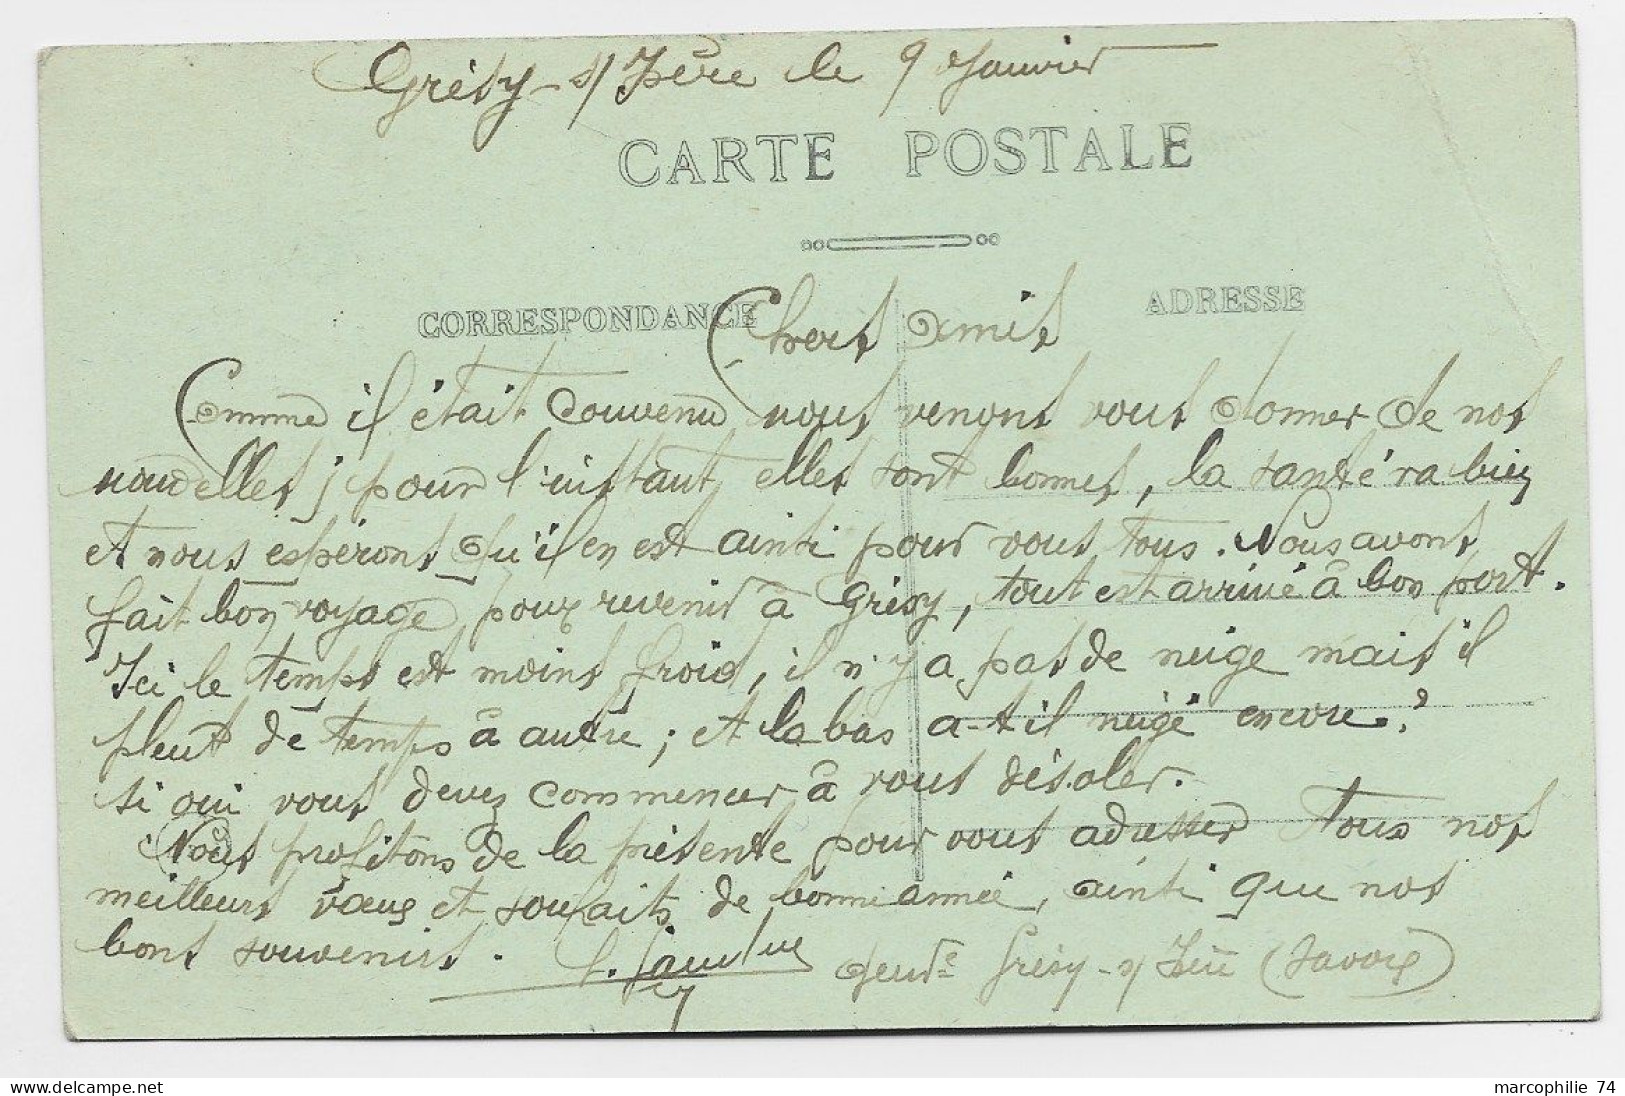 Grésy s/ Isère le 9 Janvier
CARTE POSTALE
CORRESPONDANCE
ADRESSE
Chers Amis
Comme il était convenu nous venons vous donner de nos
nouvelles; pour l'instant elles sont bonnes, la santé va bien
et nous espérons qu'il en est ainsi pour vous tous. Nous avons
fait bon voyage pour revenir à Grésy, tout est arrivé à bon port.
Ici le temps est moins froid, il n'y a pas de neige mais il
pleut de temps à autre; et la bas a-t-il neigé encore?
si oui vous devez commencer à vous désoler.
Nous profitons de la présente pour vous adresser tous nos
meilleurs vœux et souhaits de bonne année, ainsi que nos
bons souvenirs.
Gend<sup>e</sup> Grésy-s/ Isère (Savoie)
marcophilie 74